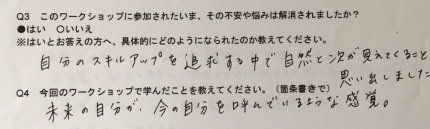 Q3 このワークショップに参加されたいま、その不安や悩みは解消されましたか？
●はい 〇いいえ
※はいとお答えの方へ、具体的にどのようになられたのか教えてください。
自分のスキルアップを追求する中で自然と次が見えてくること
思い出しました
Q4 今回のワークショップで学んだことを教えてください。（箇条書きで）
未来の自分が、今の自分を呼んでいるような感覚。